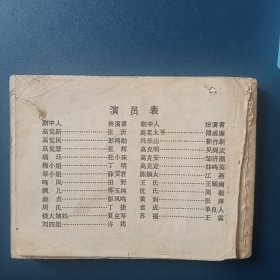 演员表
剧中人 扮演者 剧中人 扮演者
高觉新 张 高老太爷 傅威廉
高觉民 彭鸿勋 冯乐山 靳作新
高觉慧 张辉 高克明 吴
瑞珏 杜小珠 高克安 邹济
梅小姐 丁明 高克定 郎鸣
琴小姐 薛雯君 陈姨太 江燕
鸣凤 田野 王氏 王
婉儿 陈玉纯 沈氏
淑贞 彭凤鸣 黄妈 张
周氏 丁 袁成 单
钱大姨妈 夏克琴 苏福 王良
刘四姐 许